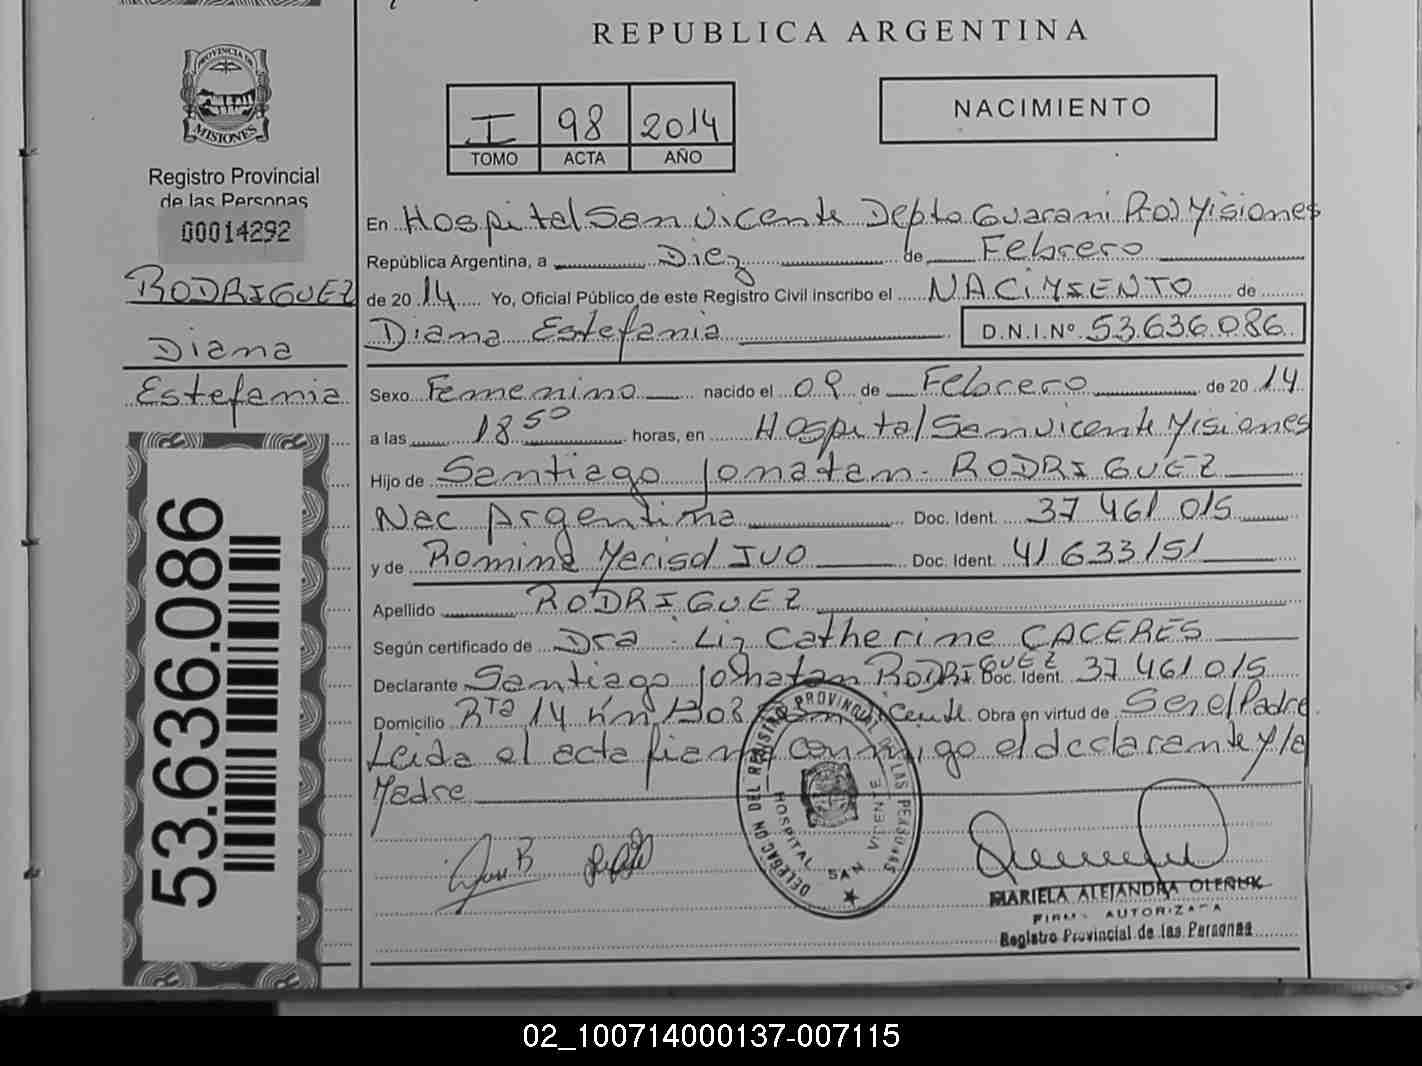 REPUBLICA ARGENTINA
PROVINCIA DE
MISIONES
Registro Provincial
de las Personas
00014292
RODRIGUEZ
Diana
Estefania
53.636.086
I 98 2014
TOMO ACTA AÑO
NACIMIENTO
En Hospital San Vicente Depto Guarani Prov Misiones
República Argentina, a Diez de Febrero
de 2014 Yo, Oficial Público de este Registro Civil inscribo el NACIMIENTO de
Diana Estefania D.N.I.Nº 53.636.086
Sexo Femenino nacido el 09 de Febrero de 2014
a las 18 50 horas, en Hospital San Vicente Misiones
Hijo de Santiago Jonatan RODRIGUEZ
Nac Argentina Doc. Ident. 37 461 015
y de Romina Marisol IUO Doc. Ident. 41 633 151
Apellido RODRIGUEZ
Según certificado de Dra. Liz Catherine CACERES
Declarante Santiago Jonatan RODRIGUEZ Doc. Ident. 37 461 015
Domicilio Rta 14 Km 1308 San Vicente Obra en virtud de Ser el Padre
Leida el acta firma conmigo el declarante y la
Madre
DELEGACION DEL REGISTRO PROVINCIAL DE LAS PERSONAS
HOSPITAL SAN VICENTE
MARIELA ALEJANDRA OLEÑUK
FIRMA AUTORIZADA
Registro Provincial de las Personas
02_100714000137-007115